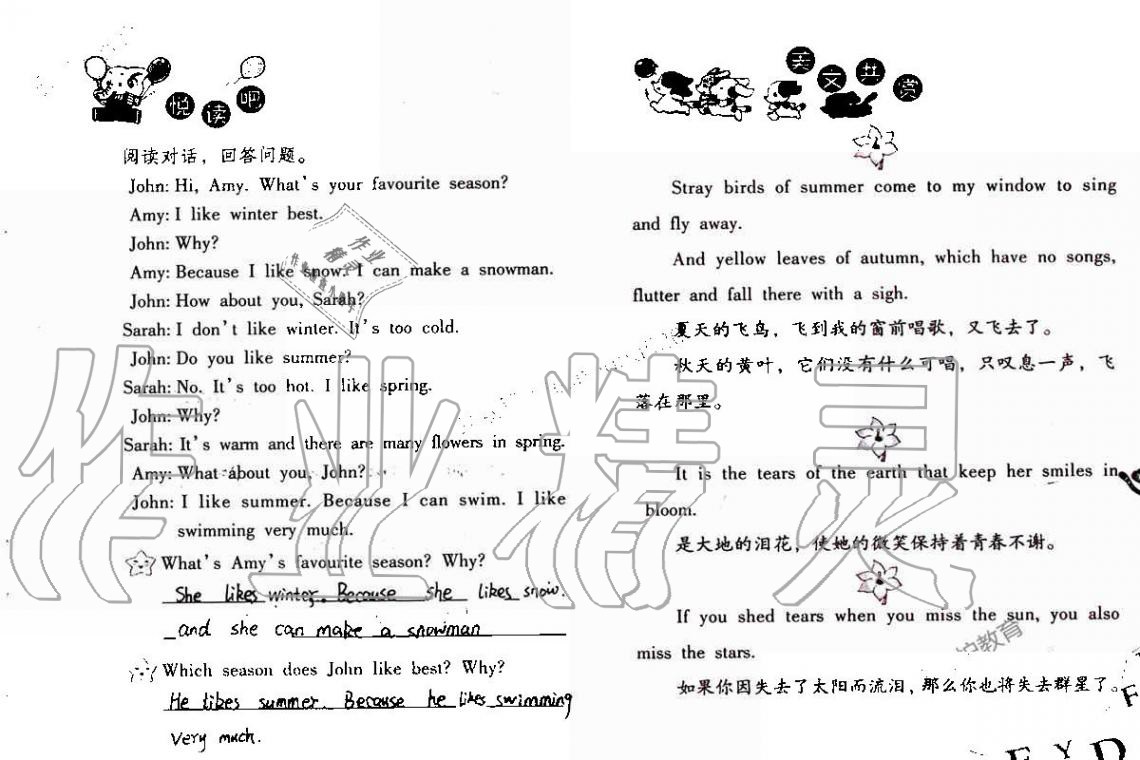 悦读吧
阅读对话，回答问题。
John: Hi, Amy. What's your favourite season?
Amy: I like winter best.
John: Why?
Amy: Because I like snow. I can make a snowman.
John: How about you, Sarah?
Sarah: I don't like winter. It's too cold.
John: Do you like summer?
Sarah: No. It's too hot. I like spring.
John: Why?
Sarah: It's warm and there are many flowers in spring.
Amy: What about you, John?
John: I like summer. Because I can swim. I like
swimming very much.
What's Amy's favourite season? Why?
She likes winter. Because she likes snow.
and she can make a snowman
Which season does John like best? Why?
He likes summer. Because he likes swimming
very much.
美文共赏
Stray birds of summer come to my window to sing
and fly away.
And yellow leaves of autumn, which have no songs,
flutter and fall there with a sigh.
夏天的飞鸟，飞到我的窗前唱歌，又飞去了。
秋天的黄叶，它们没有什么可唱，只叹息一声，飞
落在那里。
It is the tears of the earth that keep her smiles in
bloom.
是大地的泪花，使她的微笑保持着青春不谢。
If you shed tears when you miss the sun, you also
miss the stars.
如果你因失去了太阳而流泪，那么你也将失去群星了。
作业精灵
作业
精灵
教育
F
E Y D